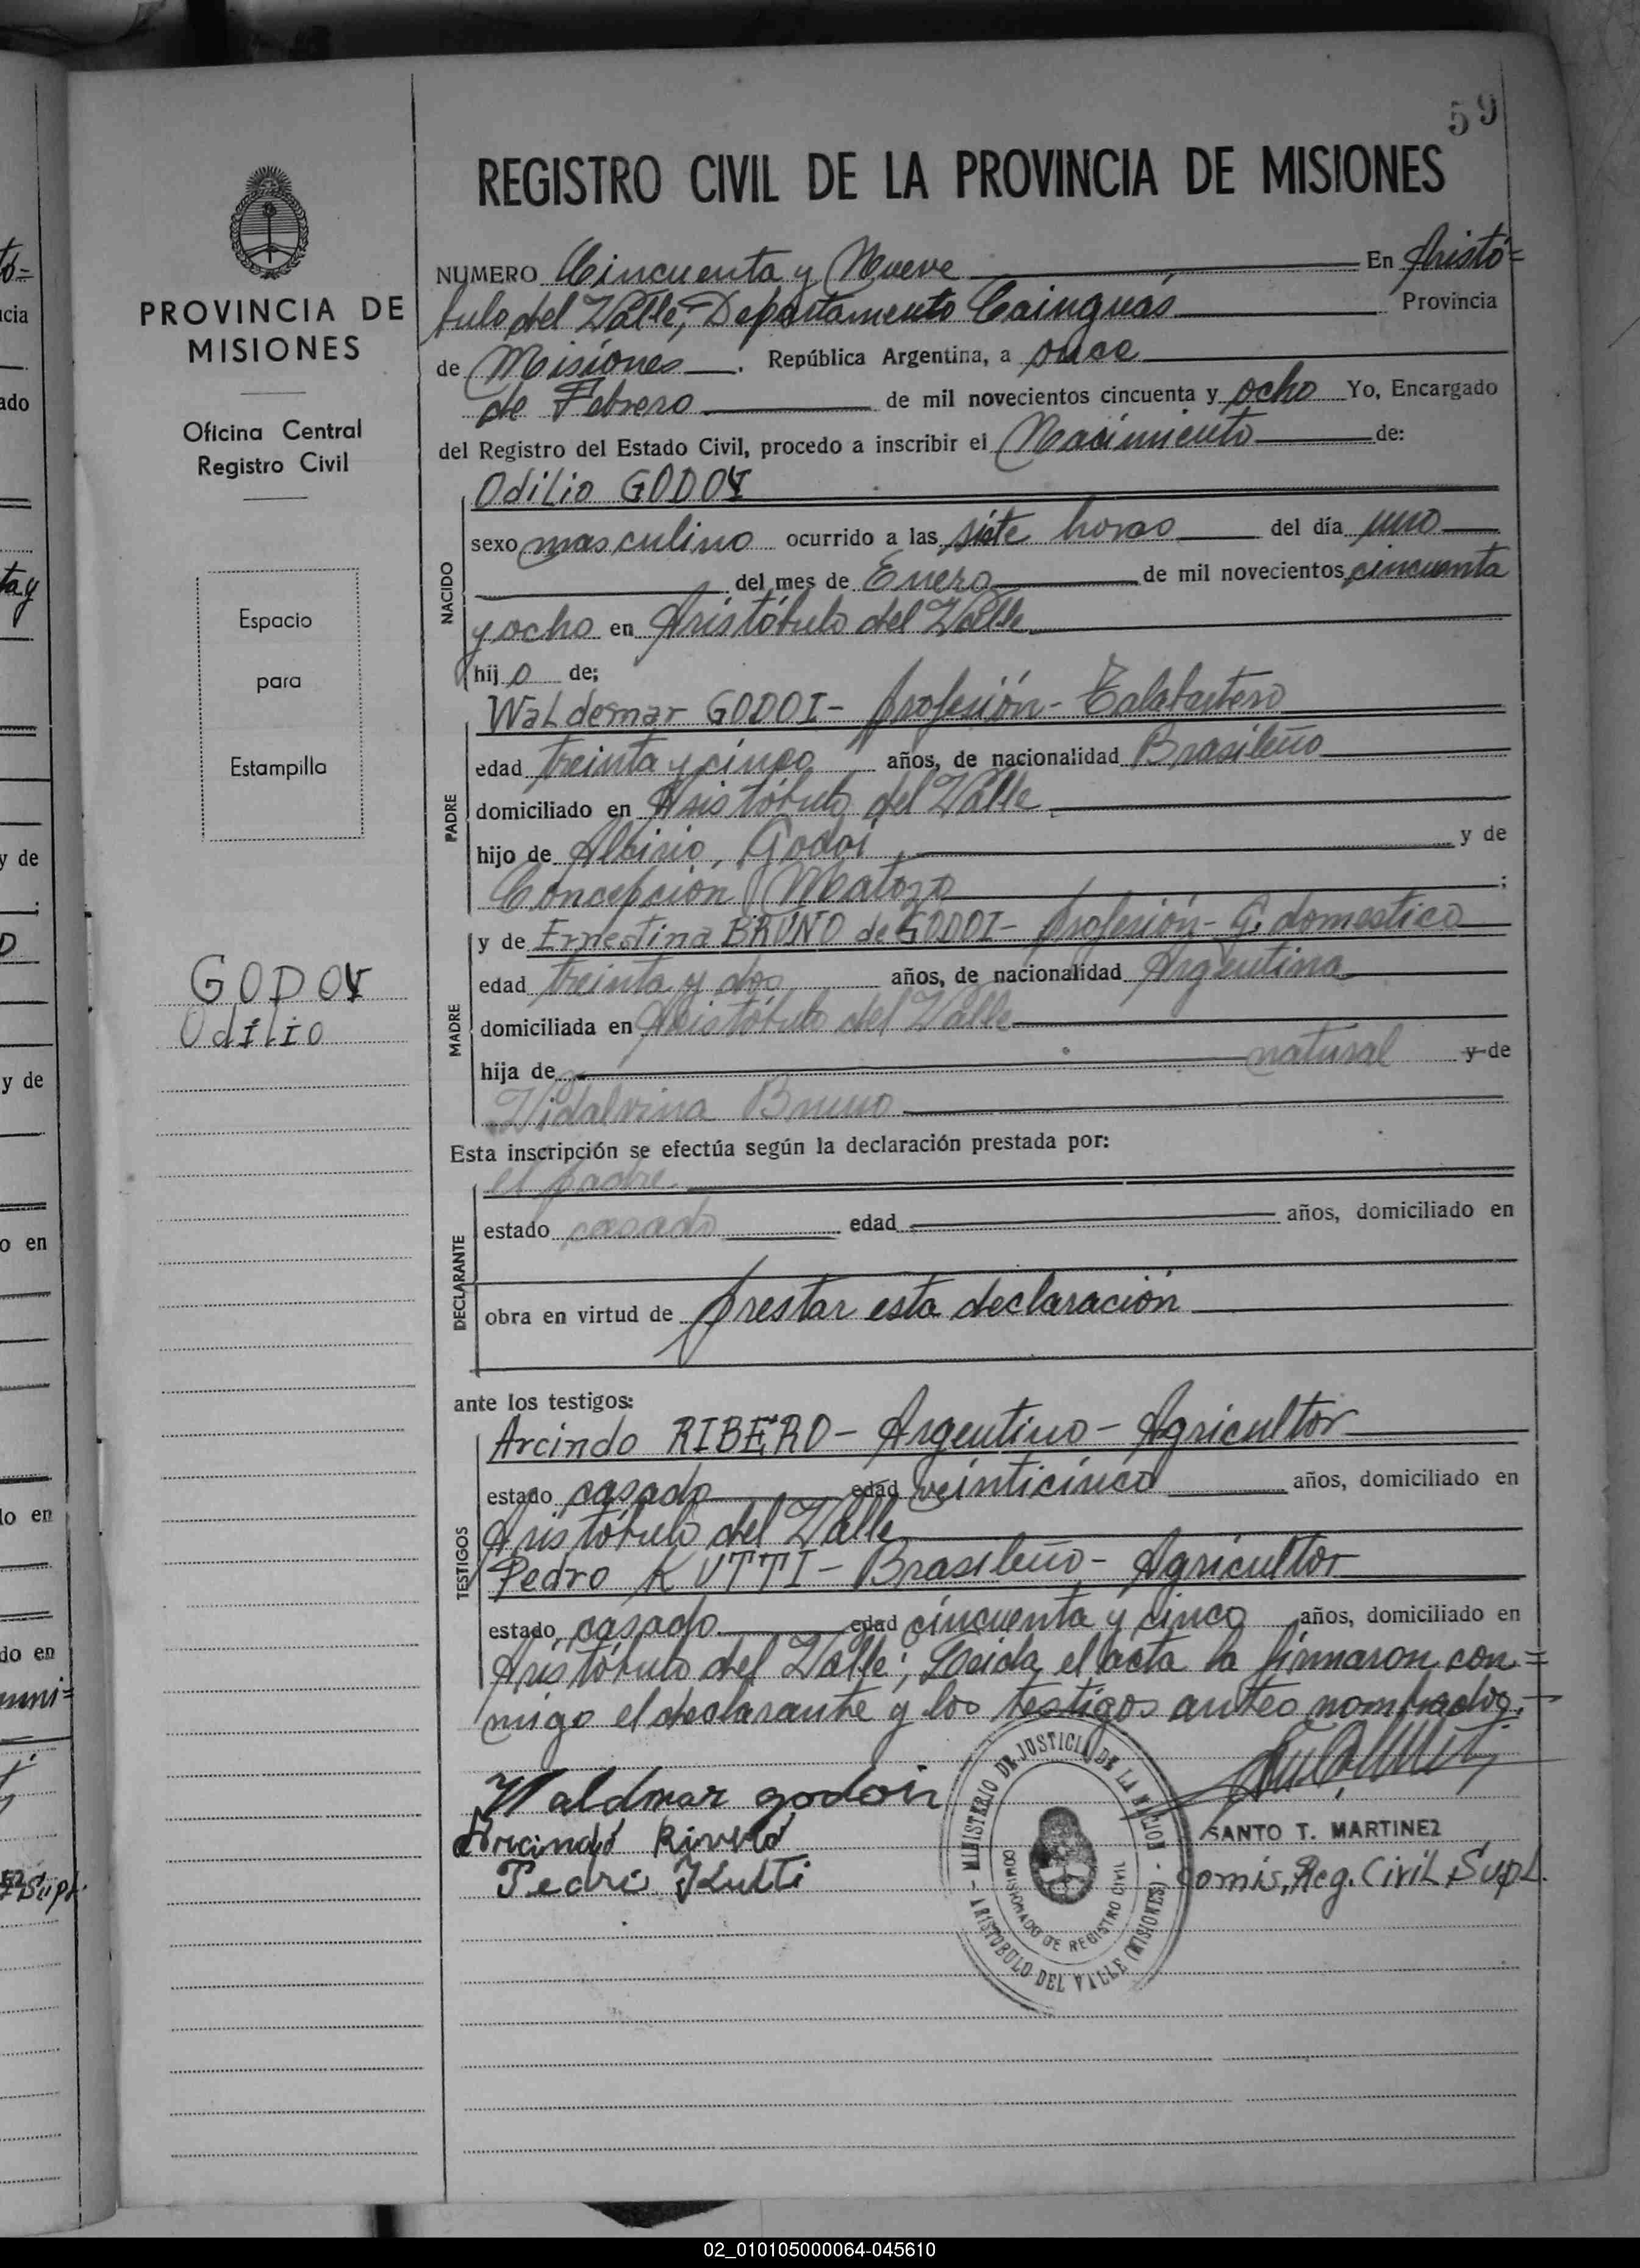 59
REGISTRO CIVIL DE LA PROVINCIA DE MISIONES
PROVINCIA DE
MISIONES
Oficina Central
Registro Civil
Espacio
para
Estampilla
GODOY
Odilio
NUMERO Cincuenta y Nueve En Aristó=
bulo del Valle, Departamento Cainguás Provincia
de Misiones . República Argentina, a once
de Febrero de mil novecientos cincuenta y ocho Yo, Encargado
del Registro del Estado Civil, procedo a inscribir el Nacimiento de:
NACIDO
Odilio GODOY
sexo masculino ocurrido a las siete horas del día uno
del mes de Enero de mil novecientos cincuenta
y ocho en Aristóbulo del Valle
hijo de;
PADRE
Waldemar GODOI - profesión - Talabartero
edad treinta y cinco años, de nacionalidad Brasileño
domiciliado en Aristóbulo del Valle
hijo de Albino, Godoi y de
Concepción Matozo ;
MADRE
y de Ernestina BRUNO de GODOI - profesión - Q. domestico
edad treinta y dos años, de nacionalidad Argentina
domiciliada en Aristóbulo del Valle
hija de natural y de
Vidalvina Bruno
Esta inscripción se efectúa según la declaración prestada por:
DECLARANTE
el padre.
estado casado edad años, domiciliado en
obra en virtud de prestar esta declaración
ante los testigos:
TESTIGOS
Arcindo RIBERO - Argentino - Agricultor
estado casado edad veinticinco años, domiciliado en
Aristóbulo del Valle
Pedro KUTTI - Brasileño - Agricultor
estado casado edad cincuenta y cinco años, domiciliado en
Aristóbulo del Valle; Leida el acta la firmaron con=
migo el declarante y los testigos antes nombrados.
Waldmar godoi
Pedro Kutti
MINISTERIO DE JUSTICIA DE LA NACION - ARISTOBULO DEL VALLE (MISIONES) -
COMISIONADO DE REGISTRO CIVIL
SANTO T. MARTINEZ
Comis, Reg. Civil Supl.
02_010105000064-045610